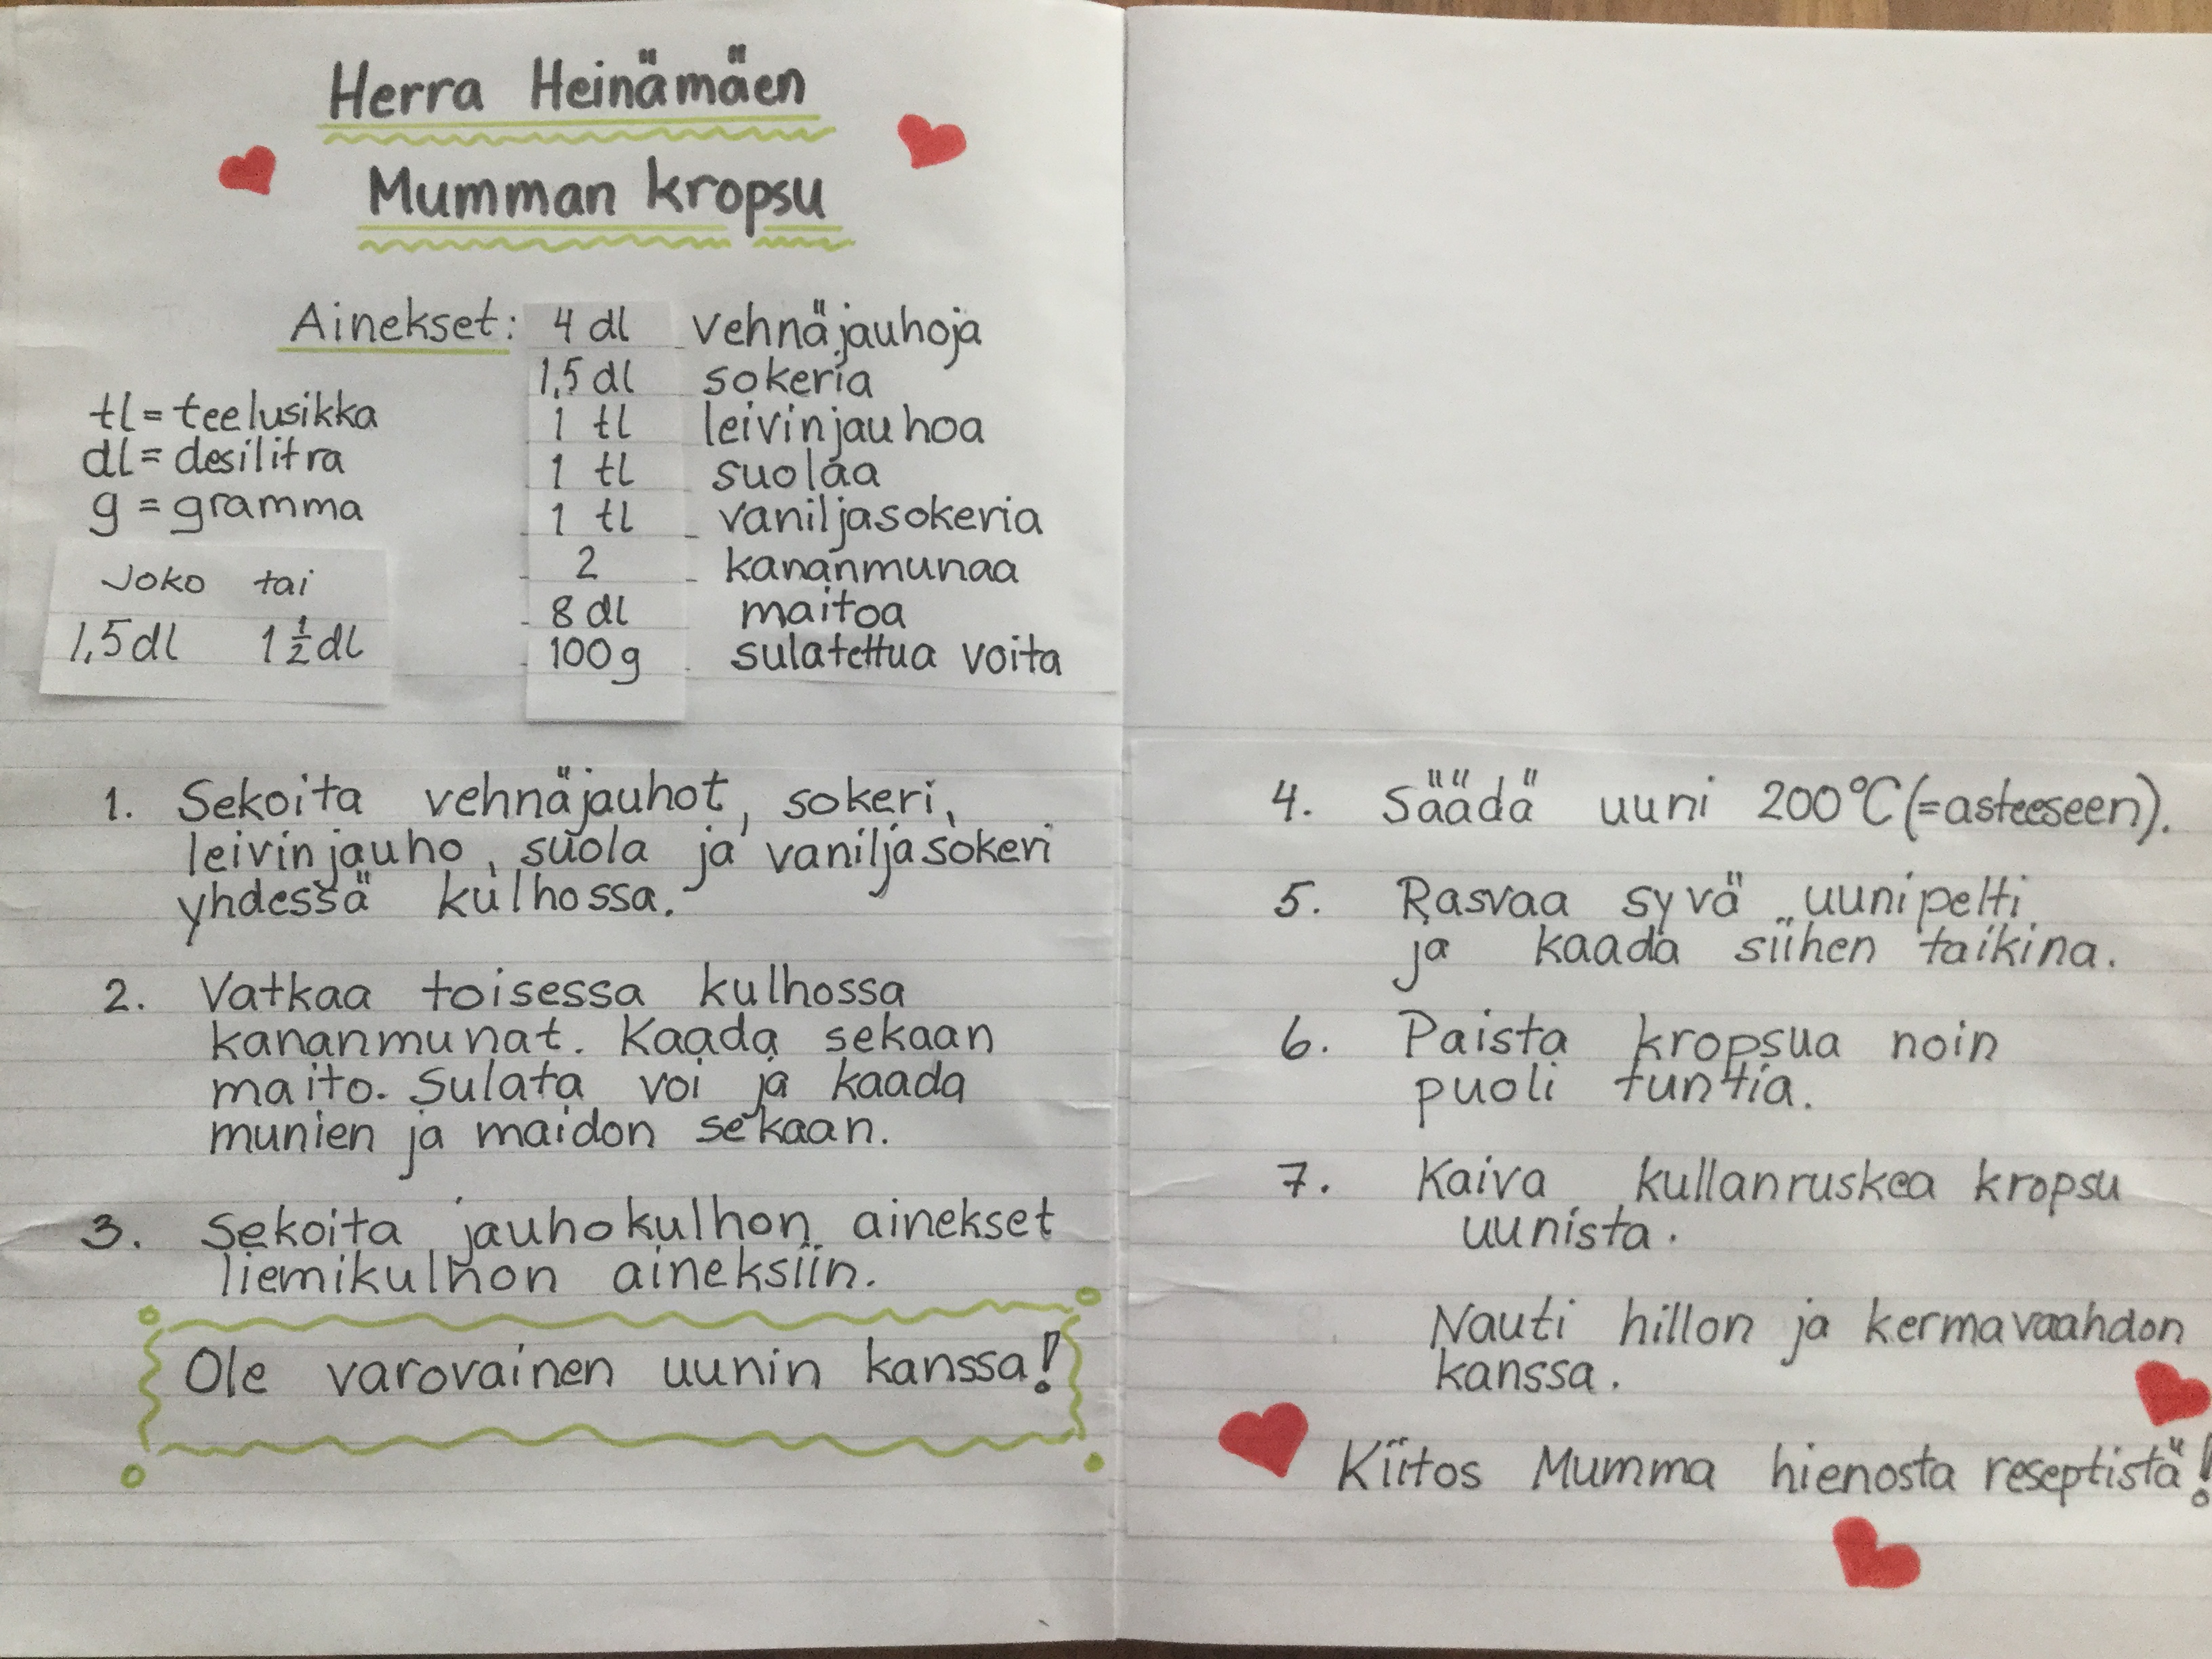 Herra Heinämäen
Mumman kropsu
Ainekset: 4 dl vehnäjauhoja
1,5 dl sokeria
1 tl leivinjauhoa
1 tl suolaa
1 tl vaniljasokeria
2 kananmunaa
8 dl maitoa
100 g sulatettua voita
tl = teelusikka
dl = desilitra
g = gramma
Joko tai
1,5 dl 1 ½ dl
1. Sekoita vehnäjauhot, sokeri,
leivinjauho, suola ja vaniljasokeri
yhdessä kulhossa.
2. Vatkaa toisessa kulhossa
kananmunat. Kaada sekaan
maito. Sulata voi ja kaada
munien ja maidon sekaan.
3. Sekoita jauhokulhon ainekset
liemikulhon aineksiin.
Ole varovainen uunin kanssa!
4. Säädä uuni 200°C (=asteeseen).
5. Rasvaa syvä uunipelti
ja kaada siihen taikina.
6. Paista kropsua noin
puoli tuntia.
7. Kaiva kullanruskea kropsu
uunista.
Nauti hillon ja kermavaahdon
kanssa.
Kiitos Mumma hienosta reseptistä!